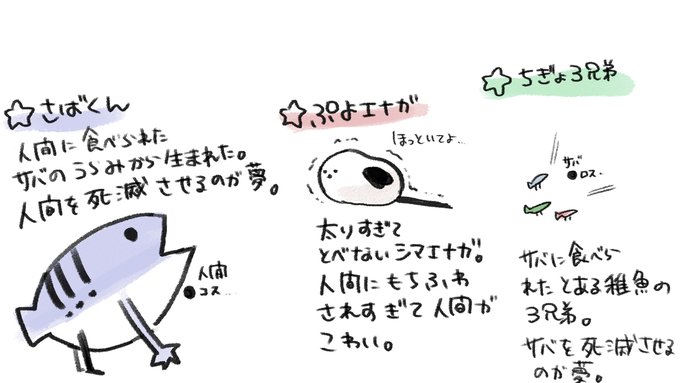 ☆さばくん
人間に食べられた
サバのうらみから生まれた。
人間を死滅させるのが夢。
人間
●コス…
☆ぷよエナガ
ほっといてよ…
太りすぎて
とべないシマエナガ。
人間にもちふわ
されすぎて人間が
こわい。
☆ちぎょ3兄弟
サバ
●ロス…
サバに食べら
れたとある稚魚の
3兄弟。
サバを死滅させる
のが夢。